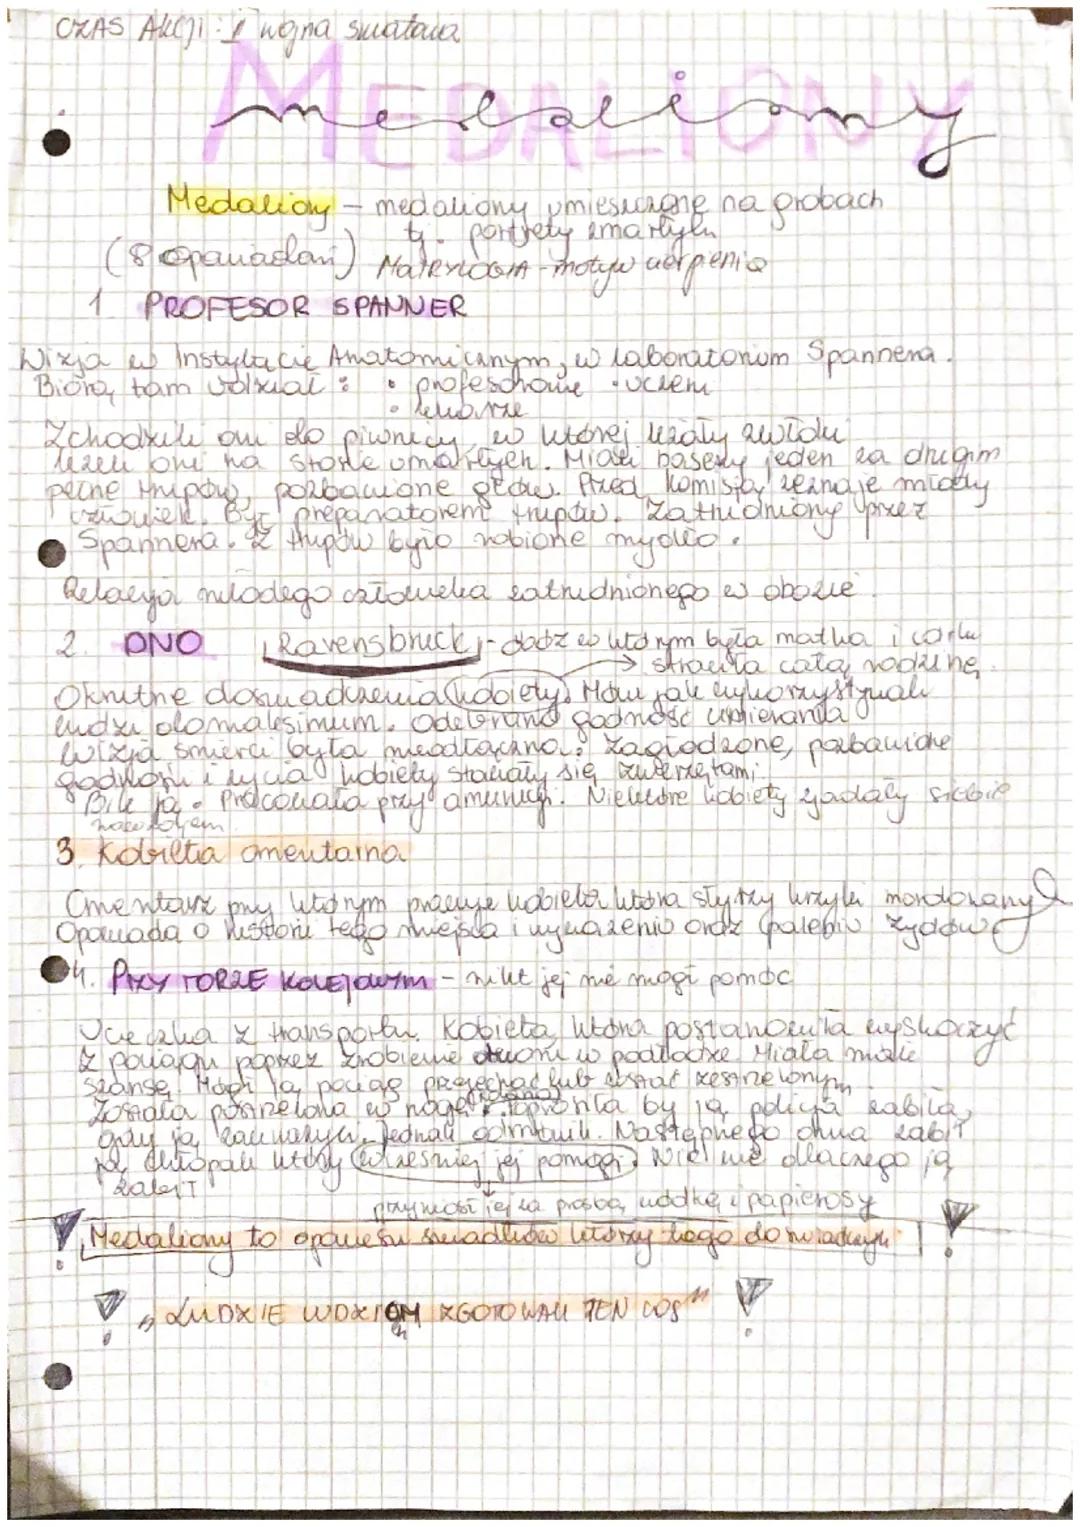 CZAS AKCJI: 1 wojna światowa
MEDALIONY
medaliony
Medaliony – medaliony umieszczone na grobach
tj. portrety zmarłych
(8 opowiadań) Martyrologia - motyw cierpienia
1. PROFESOR SPANNER
Wizja w Instytucie Anatomicznym, w laboratorium Spannera.
Biorą tam udział: • profesorowie • uczeni
• lekarze
Zchodzili oni do piwnicy, w której leżały zwłoki
leżeli oni na stosie umarłych. Mieli baseny jeden za drugim
pełne trupów, pozbawione głów. Przed komisją zeznaje młody
człowiek. Był preparatorem trupów. Zatrudniony przez
Spannera. Z trupów było robione mydło.
Relacja młodego człowieka zatrudnionego w obozie.
2. DNO Ravensbruck - obóz w którym była matka i córka
→ straciła całą rodzinę.
Okrutne doświadczenia kobiety. Mówi jak wykorzystywali
ludzi do maksimum. Odebrano godność umierania
Wizja śmierci była nieodłączna. Zagłodzone, pozbawione
godności i życia kobiety stawały się zwierzętami.
Bili ją. Pracowała przy amunicji. Niektóre kobiety zjadały siebie
nawzajem
3. Kobieta cmentarna
Cmentarz przy którym pracuje kobieta która słyszy krzyki mordowanych
Opowiada o historii tego miejsca i wywożeniu oraz paleniu Żydów
4. PRZY TORZE KOLEJOWYM - nikt jej nie mógł pomóc
Ucieczka z transportu. Kobieta, która postanowiła wyskoczyć
z pociągu poprzez zrobienie dziury w podłodze. Miała małe
szanse. Mógł ją pociąg przejechać lub zostać zestrzelonym
Została postrzelona w nogę (kolano). Poprosiła by ją policja zabiła,
gdy ją zauważyli, jednak odmówili. Następnego dnia zabił
ją chłopak który wcześniej jej pomógł. Nikt nie dlaczego ją
zabił
przyniósł jej za prośbą wódkę i papierosy
Medaliony to opowieści świadków którzy tego doświadczyli
"LUDZIE LUDZIOM ZGOTOWALI TEN LOS"